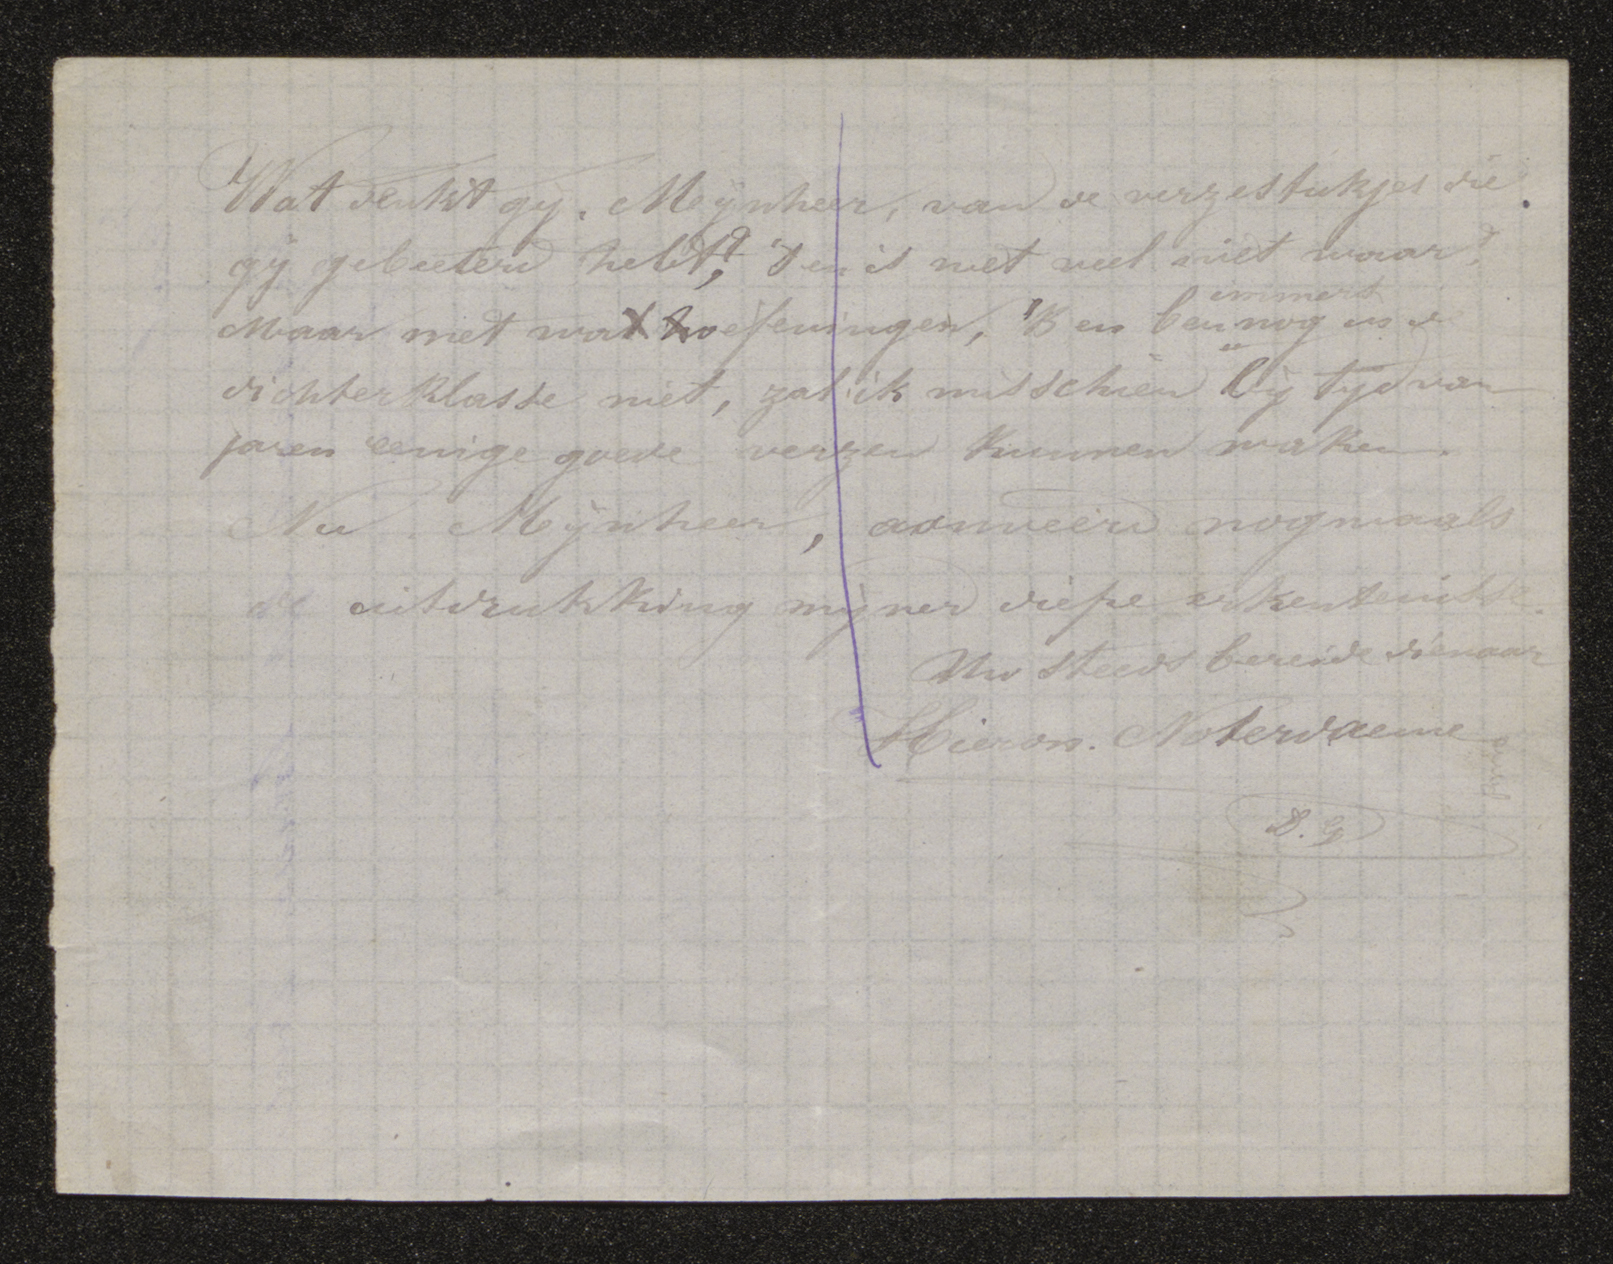 Wat denkt gij, Mijnheer, van de verzestukjes die
gij gebeeterd hebt? 't en is niet veel niet waar?
Maar met wat oefeningen, 'k en ben immers nog in de
dichterklasse niet, zal ik misschien bij tijd van
jaren eenige goede verzen kunnen maken.
Nu Mijnheer, aanveerd nogmaals
de uitdrukking mijner diepe erkentenisse.
Uw steeds bereide dienaar
Hieron. Noterdaeme
D. G